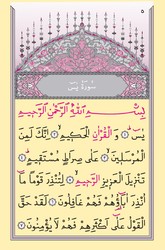 ٥
سُورَةُ يٰسٓ
بِسْمِ اللّٰهِ الرَّحْمٰنِ الرَّحِيمِ
يٰسٓ ﴿١﴾ وَالْقُرْاٰنِ الْحَكِيمِ ﴿٢﴾ اِنَّكَ لَمِنَ
الْمُرْسَلِينَ ﴿٣﴾ عَلٰى صِرَاطٍ مُسْتَقِيمٍ ﴿٤﴾
تَنْزِيلَ الْعَزِيزِ الرَّحِيمِ ﴿٥﴾ لِتُنْذِرَ قَوْمًا مَا
اُنْذِرَ اٰبَاؤُهُمْ فَهُمْ غَافِلُونَ ﴿٦﴾ لَقَدْ حَقَّ
الْقَوْلُ عَلٰى اَكْثَرِهِمْ فَهُمْ لَا يُؤْمِنُونَ ﴿٧﴾